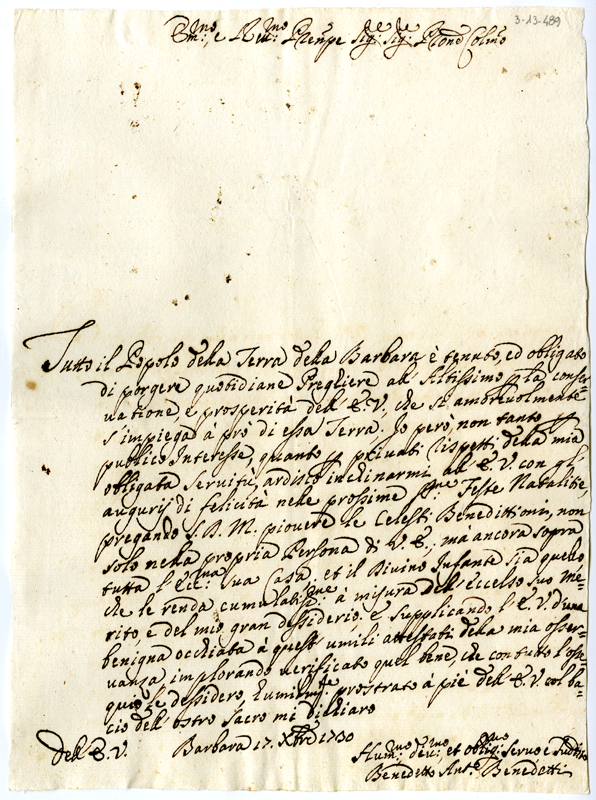 3-13-489
Em:mo, e R:mo Prenpe Sig:re Sig:re Prone Colmo
Tutto il Popolo della Terra della Barbara è tenuto, ed obligato
di porgere quotidiane Pregliere all' Altissimo p la conser=
uatione, e prosperità dell' E.V., che si amoreuolmente
s'impiega à prò di essa Terra. Io però, non tanto p
publico Interesse, quanto p priuati rispetti della mia
obligata Seruitù, ardisco inclinarmi all' E.V. con gl'
augurij di felicità nelle prossime Feste Natalitie,
pregando S.D.M. piouere le Celesti Benedittioni, non
solo nella propria Persona di V.E., ma ancora sopra
tutta l'Ecc:ma sua Casa, et il Diuino Infante sia quello
che le renda cumulatis:me à misura dell' Eccelso suo me=
rito, e del mio gran dessiderio. E supplicando l'E.V. d'una
benigna occhiata à questi umili attestati della mia osser=
uanza, implorando uerificato quel bene, che con tutto l'osse
quio le dessidero, humilm:te prostrato à piè dell' E.V. col ba=
cio dell' ostro Sacro mi dichiaro
Dell' E.V.
Barbara 17. Xbre 1730
Hum:mo deu:mo, et oblig:mo Seruo e Suddito
Benedetto Ant:o Benedetti